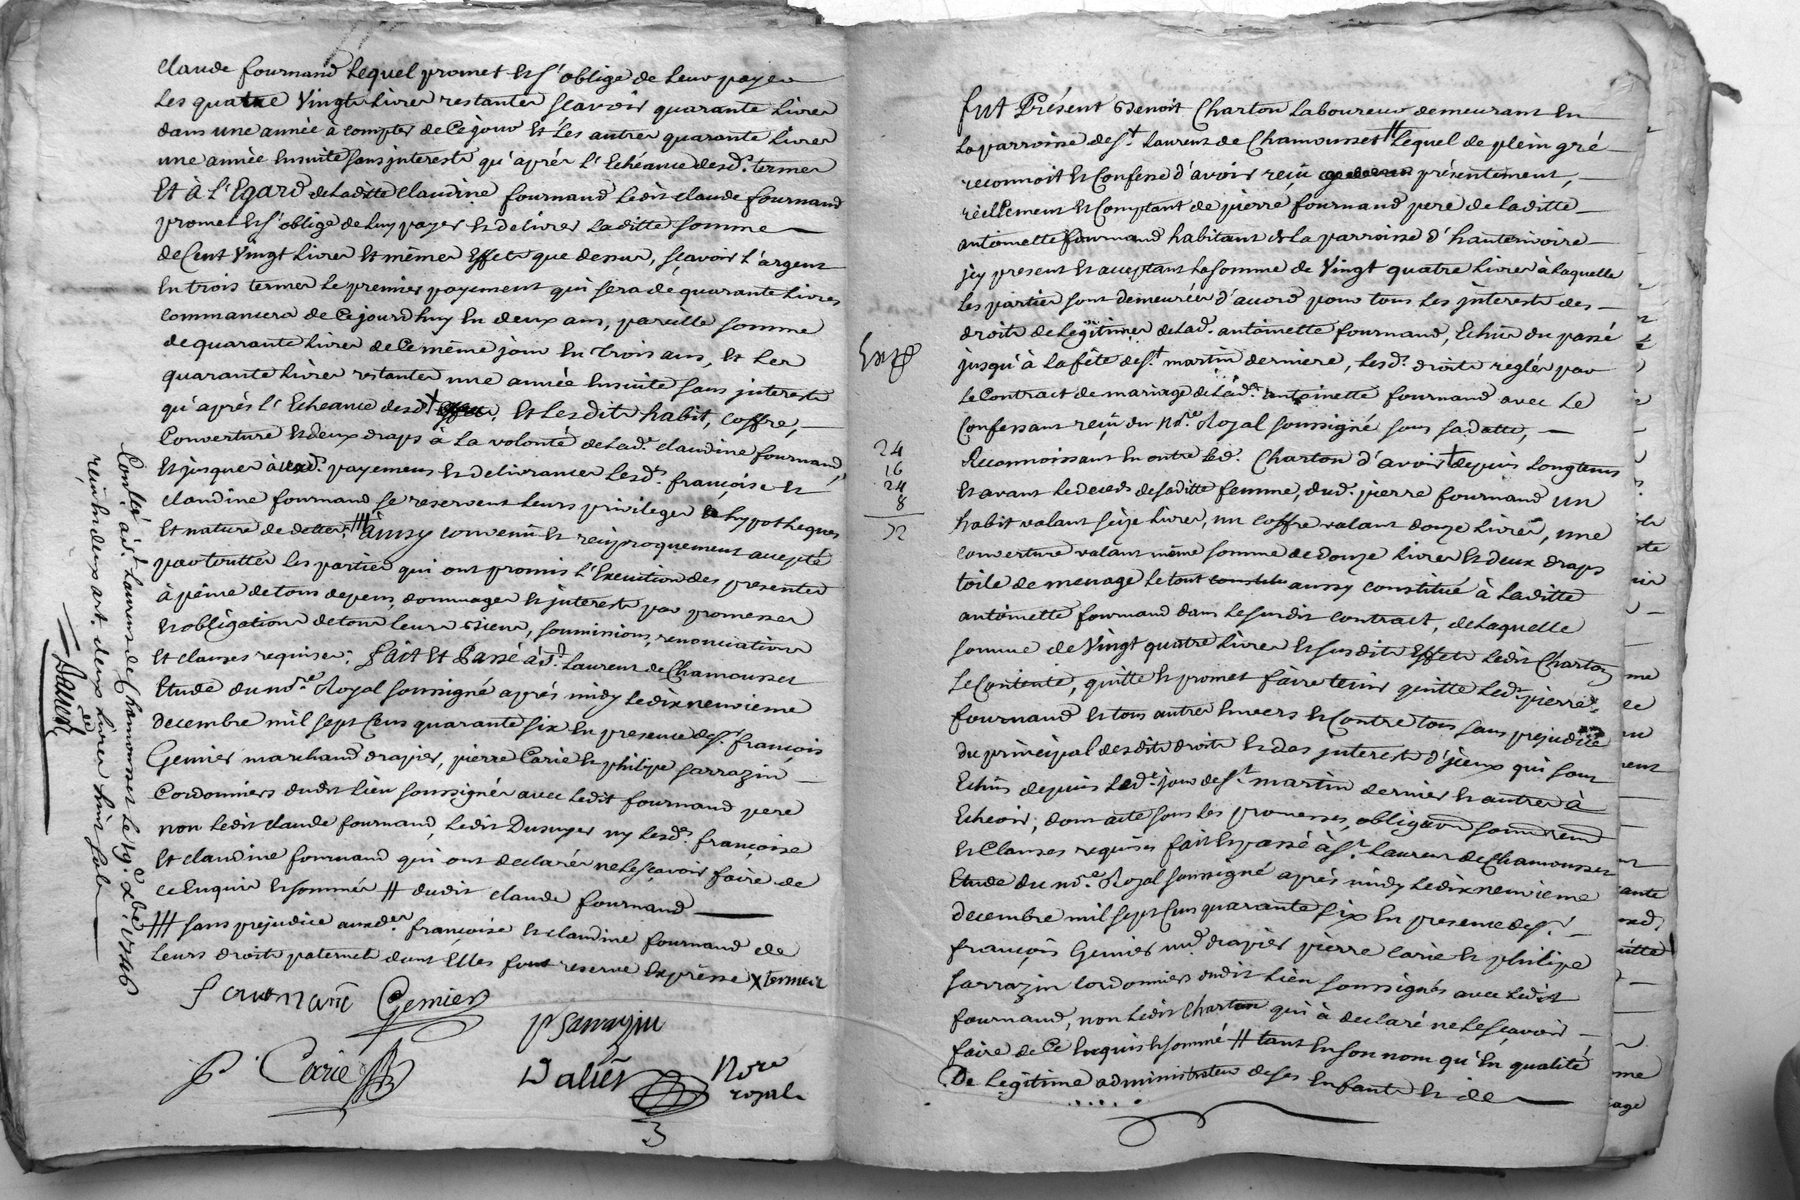 claude fournand lequel promet et s'oblige de leur payer
les quatre vingt livres restantes scavoir quarante livres
dans une année à compter de ce jour et les autres quarante livres
une année ensuite sans interests qu'après l'echéance desd. termes
Et à l'Egard de laditte claudine fournand ledit claude fournand
promet et s'oblige de luy payer et delivrer laditte somme
de Cent Vingt livres et mêmes effets que dessus, scavoir l'argent
en trois termes le premier payement qui sera de quarante livres
commancera de ce jourd'huy en deux ans, pareille somme
de quarante livres de ce même jour en trois ans, et les
quarante livres restantes une année ensuite sans interests
qu'après l'Echeance desd. X et lesdits habit, coffre,
Couverture et deux draps à la volonté de lad.e claudine fournand,
et jusques auxd. payemens et delivrances lesd. françoise et
claudine fournand se reservent leurs privileges et hypotheques
et nature de dettes, # aussy convenu et reciproquement accepté
par touttes les parties qui ont promis l'Execution des presentes
à peine de tous depens, dommages et interests par promesses
et obligations de tous leurs biens, soumissions, renonciations
et clauses requises; fait et Passé à St. Laurent de Chamousset
Etude du no.re Royal soussigné après midy le dix neuvieme
decembre mil sept Cens quarante six en presence de sr. françois
Gemier marchand drapier, pierre Carie et philipe sarrazin
Cordonniers dudit lieu soussignés avec ledit fournand pere
non ledit claude fournand, ledit Dusuyer ny lesd. françoise
et claudine fournand qui ont declarés ne le scavoir faire de
ce Enquis et sommés # dudit claude fournand
# sans prejudice auxd.es françoise et claudine fournand de
leurs droits paternels dont Elles font reserve expresse X termes
fournand Gemier
P Sarrazin
P. Carie
Dalier Nore
royal
3
Con.llé à St. Laurent de Chamousset le 19.e xbre 1746
reçu en deux art. deux livres huit sols
Dalier
fut Présent Benoit Charton laboureur demeurant en
la parroisse de St. Laurent de Chamousset # lequel de plein gré
reconnoit et Confesse d'avoir reçu présentement,
réellement et Comptant de pierre fournand pere de laditte
antoinette fournand habitant de la parroisse d'hauterivoire
icy present et acceptant la somme de Vingt quatre livres à laquelle
les parties sont demeurées d'accord pour tous les interests des
droits de legitimes de lad. antoinette fournand, Echus du passé
jusqu'à la fête de St. martin derniere, lesd. droits reglés par
le Contract de mariage de lad.e antoinette fournand avec le
Confessant reçu du no.re Royal soussigné sous sa datte,
Reconnoissant en outre led. Charton d'avoir depuis longtems
et avant le deceds de saditte femme, dud. pierre fournand un
habit valant seize livres, un coffre valant douze livres, une
couverture valant même somme de douze livres et deux draps
toile de menage le tout aussy constitué à laditte
antoinette fournand dans le susdit contract, de laquelle
somme de Vingt quatre livres et susdits Effets ledit Charton
se Contente, quitte et promet faire tenir quitte led. pierre
fournand et tous autres envers et Contre tous sans prejudice
du principal desdits droits et des interests d'iceux qui sont
Echus depuis led. jour de St. martin dernier et autres à
Echeoir; dont acte sous les promesses, obligaons soumons renons
et Clauses requises fait et passé à St. Laurent de Chamousset
Etude du no.re Royal soussigné après midy le dix neuvieme
decembre mil sept Cens quarante six en presence de sr.
françois Gemier md drapier pierre carie et philipe
sarrazin cordonniers dudit lieu soussignés avec ledit
fournand, non ledit Charton qui à declaré ne le scavoir
faire de ce enquis et sommé # tant en son nom qu'En qualité
De legitime administrateur de ses enfants et de
24
16
24
8
72